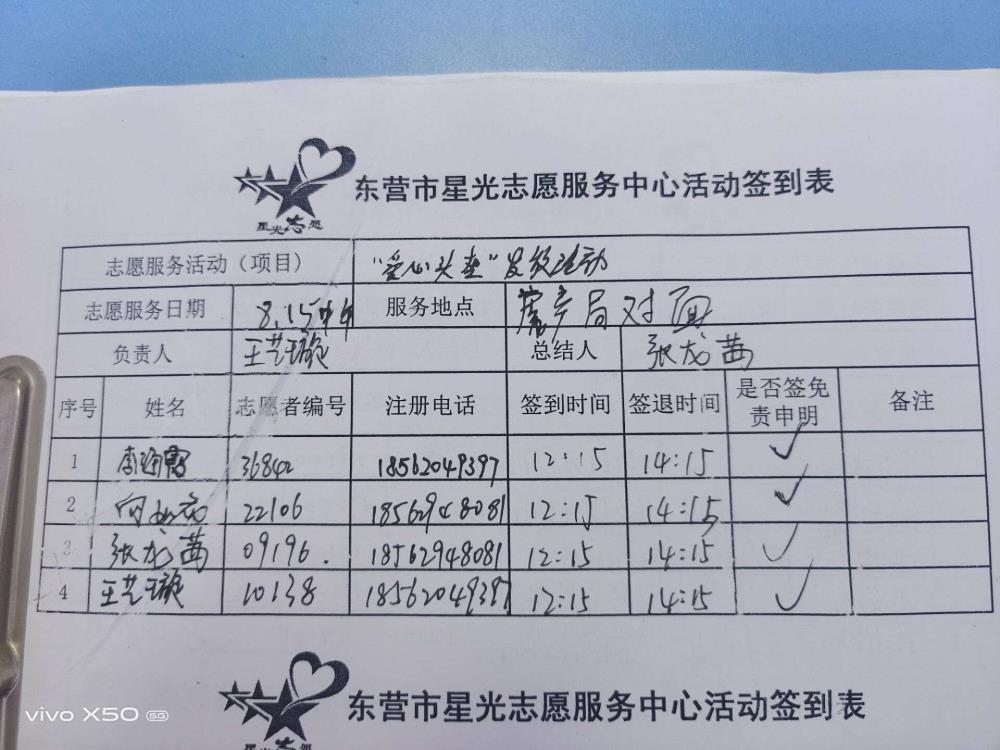 星光志愿
东营市星光志愿服务中心活动签到表
志愿服务活动（项目） "爱心头盔"发放活动
志愿服务日期 8.15中午 服务地点 产局对面
负责人 王艺璇 总结人 张龙茜
序号 姓名 志愿者编号 注册电话 签到时间 签退时间 是否签免责申明 备注
1 李 36842 18562049397 12:15 14:15 ✓
2 22106 18562948081 12:15 14:15 ✓
3 张龙茜 09196. 18562948081 12:15 14:15 ✓
4 王艺璇 10138 18562049397 12:15 14:15 ✓
东营市星光志愿服务中心活动签到表
星光志愿
vivo X50 5G